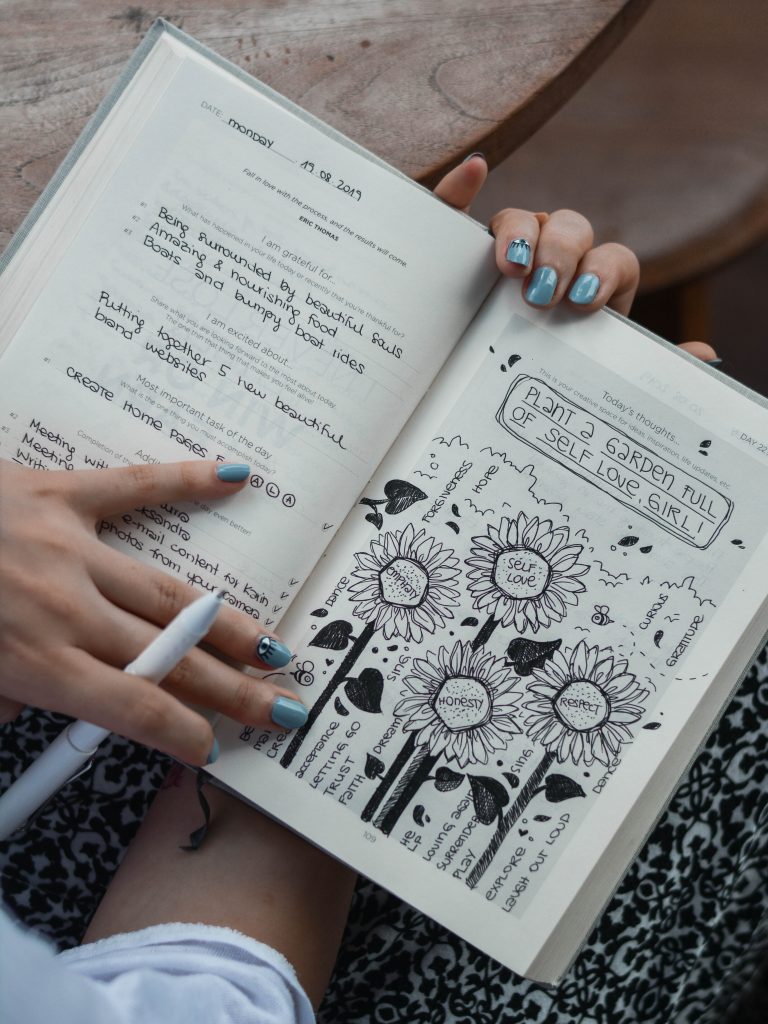 DATE: monday 19.08.2019
Fall in love with the process, and the results will come.
ERIC THOMAS
I am grateful for...
What has happened in your life today or recently that you're thankful for?
#1 Being surrounded by beautiful souls
#2 Amazing & nourishing food
#3 Boats and bumpy boat rides
I am excited about...
Share what you are looking forward to the most about today.
The one thing that makes you feel alive!
Putting together 5 new beautiful
band websites
Most important task of the day
What is the one thing you must accomplish today?
#1 CREATE HOME PAGES
Completion of
day even better!
#2 Meeting with
#3 Meeting
e-mail content for Karin
photos from your camera
DAY 22
Today's thoughts...
This is your creative space for ideas, inspiration, life updates, etc.
PLANT A GARDEN FULL
OF SELF LOVE, GIRL!
FORGIVENESS
HOPE
SELF
LOVE
EMPATHY
HONESTY
RESPECT
CURIOUS
GRATITUDE
DANCE
SING
DREAM
SING
DANCE
acceptance
LETTING GO
TRUST
FAITH
HELP
LOVING AGAIN
SURRENDER
PLAY
EXPLORE
LAUGH OUT LOUD
109